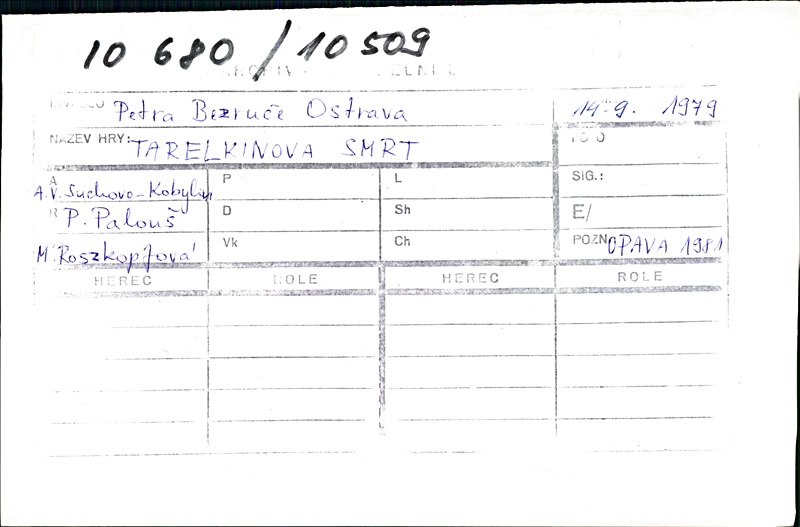 10 680 / 10 509
Petra Bezruče Ostrava 14. 9. 1979
NÁZEV HRY: TARELKINOVA SMRT
A A. V. Suchovo-Kobylin P L SIG.:
R P. Palouš D Sh E/
M. Roszkopfová Vk Ch POZN OPAVA 1981
HEREC ROLE HEREC ROLE